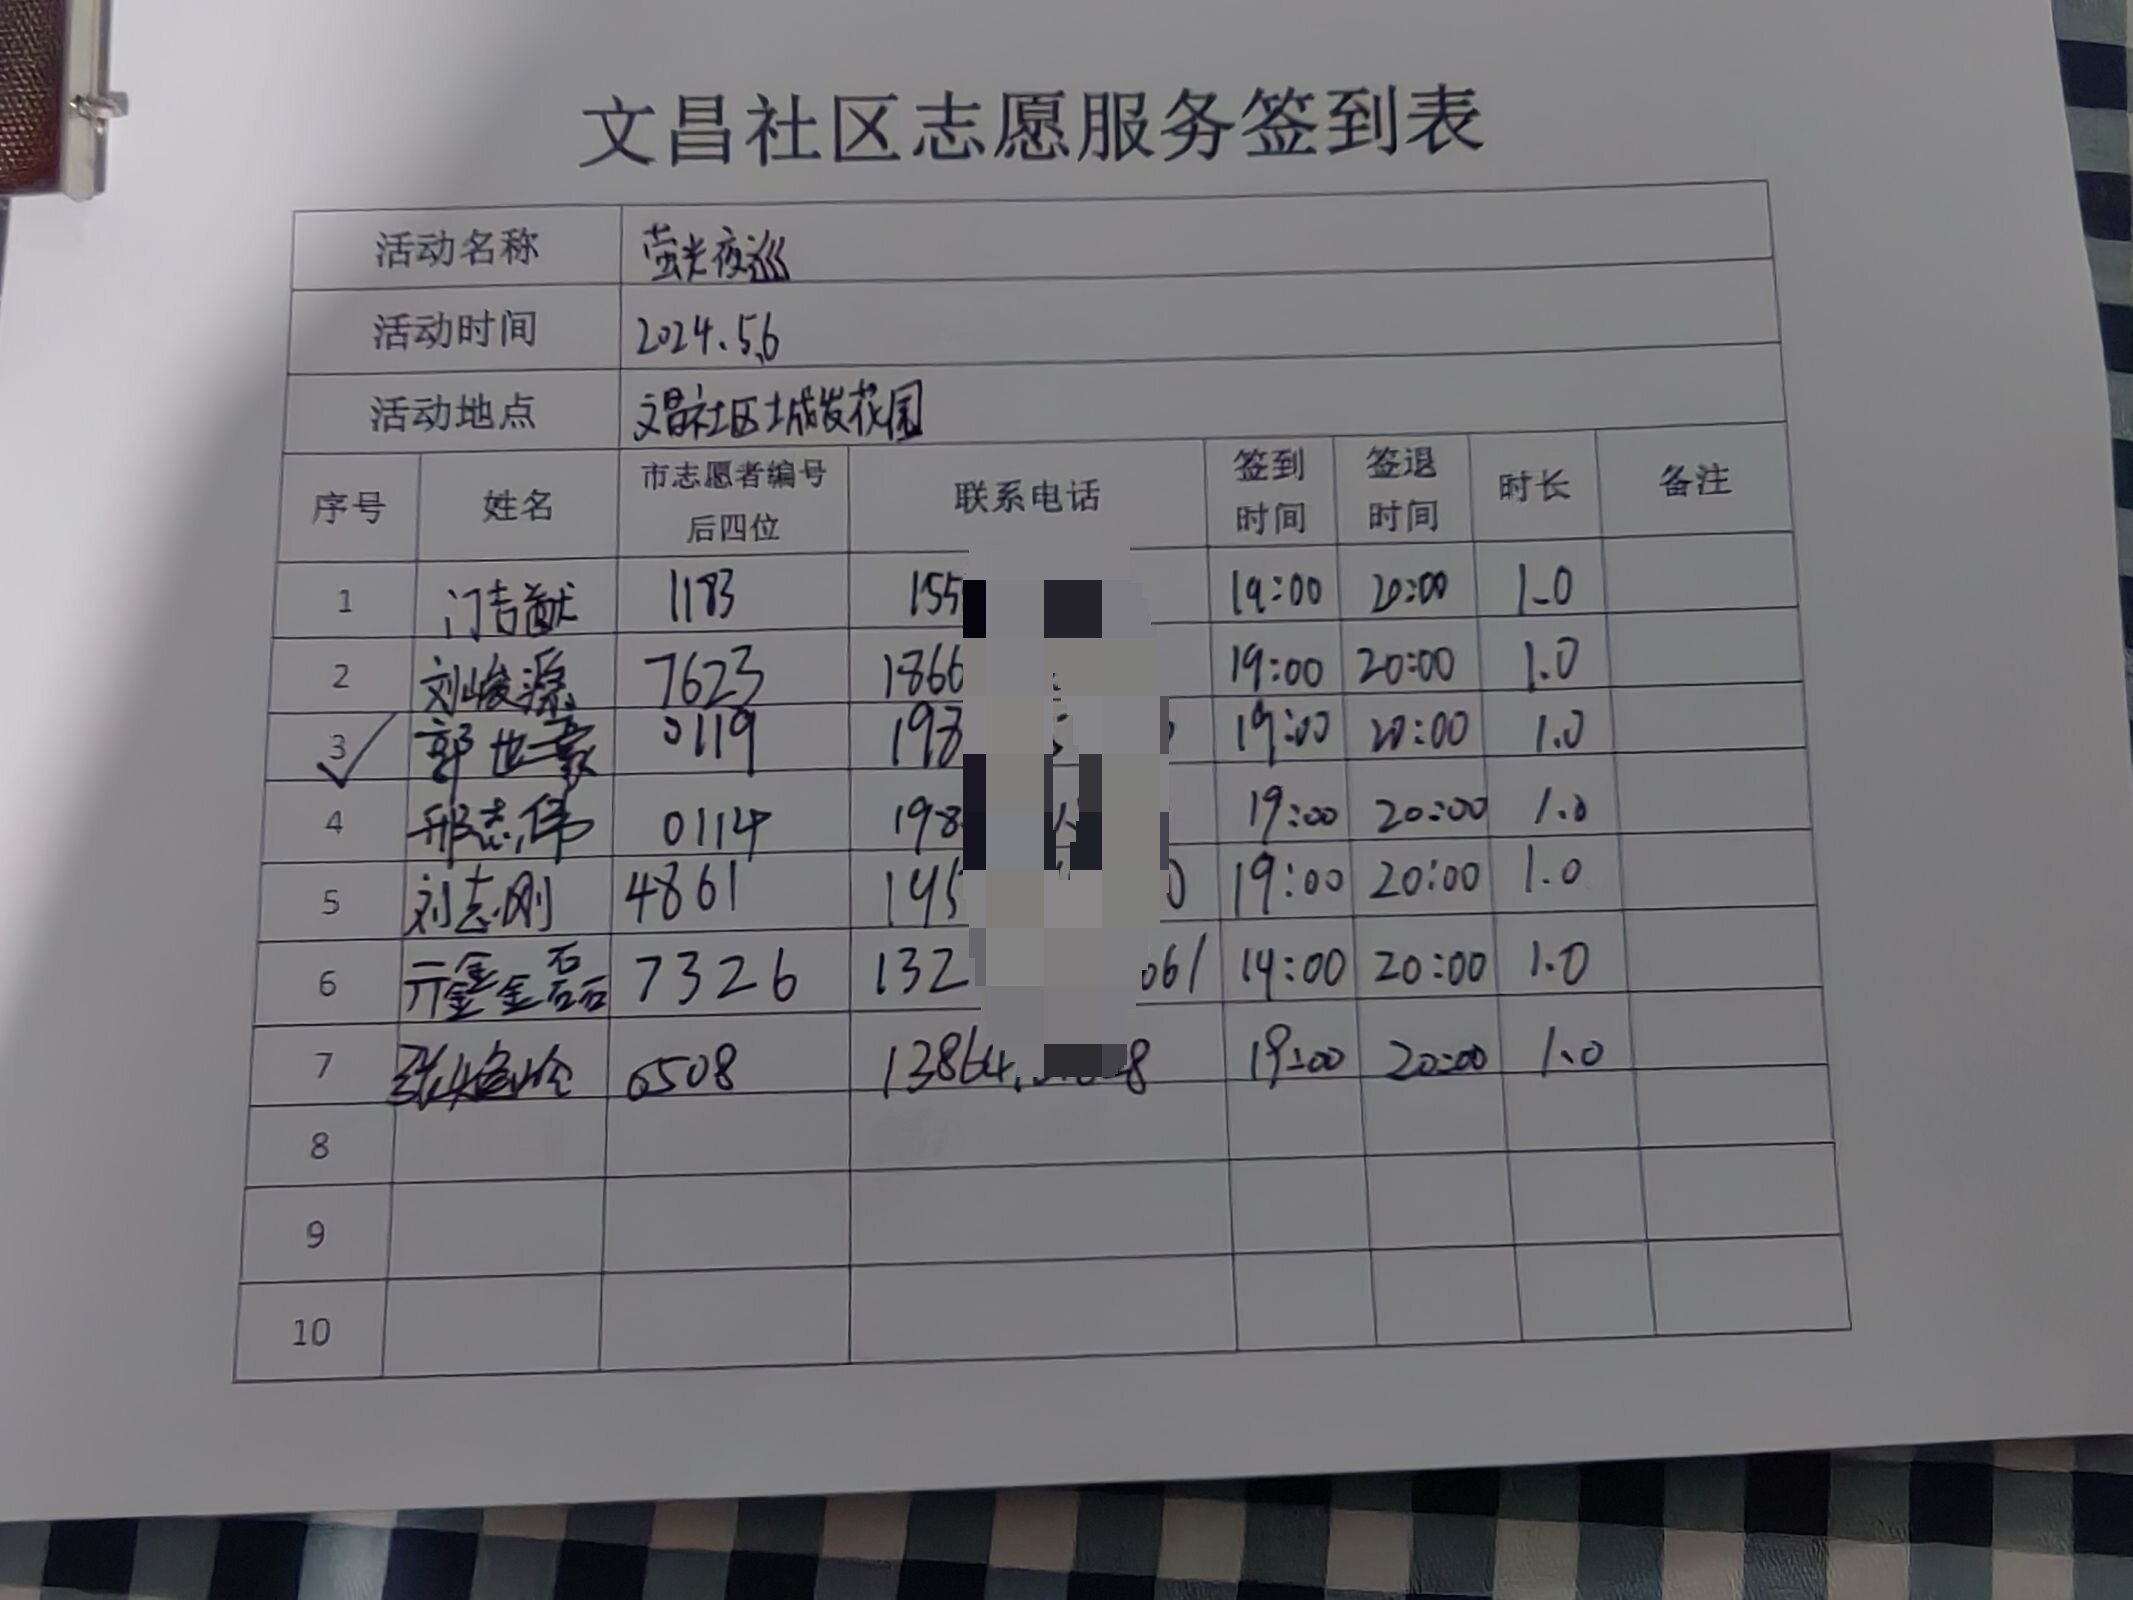 文昌社区志愿服务签到表
活动名称 萤光夜巡
活动时间 2024.5.6
活动地点 文昌社区城发花园
序号 姓名 市志愿者编号后四位 联系电话 签到时间 签退时间 时长 备注
1 门吉猷 1183 155 19:00 20:00 1.0
2 刘峻源 7623 1866 19:00 20:00 1.0
3 郭世豪 0119 198 19:00 20:00 1.0
4 邢志伟 0114 198 19:00 20:00 1.0
5 刘志刚 4861 195 0 19:00 20:00 1.0
6 亓鑫磊 7326 132 061 19:00 20:00 1.0
7 张 6508 13864 8 19:00 20:00 1.0
8
9
10